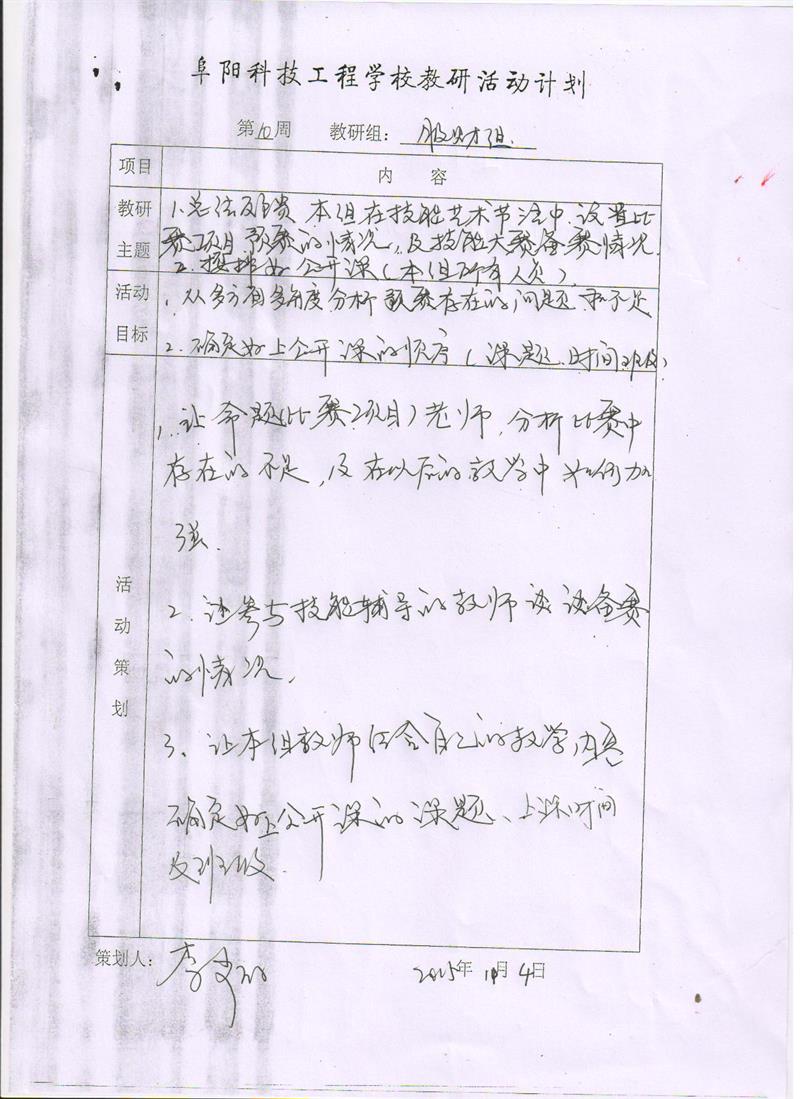 阜阳科技工程学校教研活动计划
第10周 教研组: 服财组
项目 内 容
教研主题
1、总结 本组在技能艺术节活中设置比
赛项目预赛的情况,及技能大赛备赛情况
2、安排好公开课(本组所有人员)
活动目标
1、从多方面多角度分析预赛存在的问题和不足
2、确定好上公开课的顺序(课题、时间、班级)
活动策划
1、让命题(比赛项目)老师,分析比赛中
存在的不足,及在以后的教学中如何加
强.
2、让参与技能辅导的教师谈谈备赛
的情况.
3、让本组教师结合自己的教学内容
确定好上公开课的课题、上课时间
及班级.
策划人: 李
2015年 11月 4日